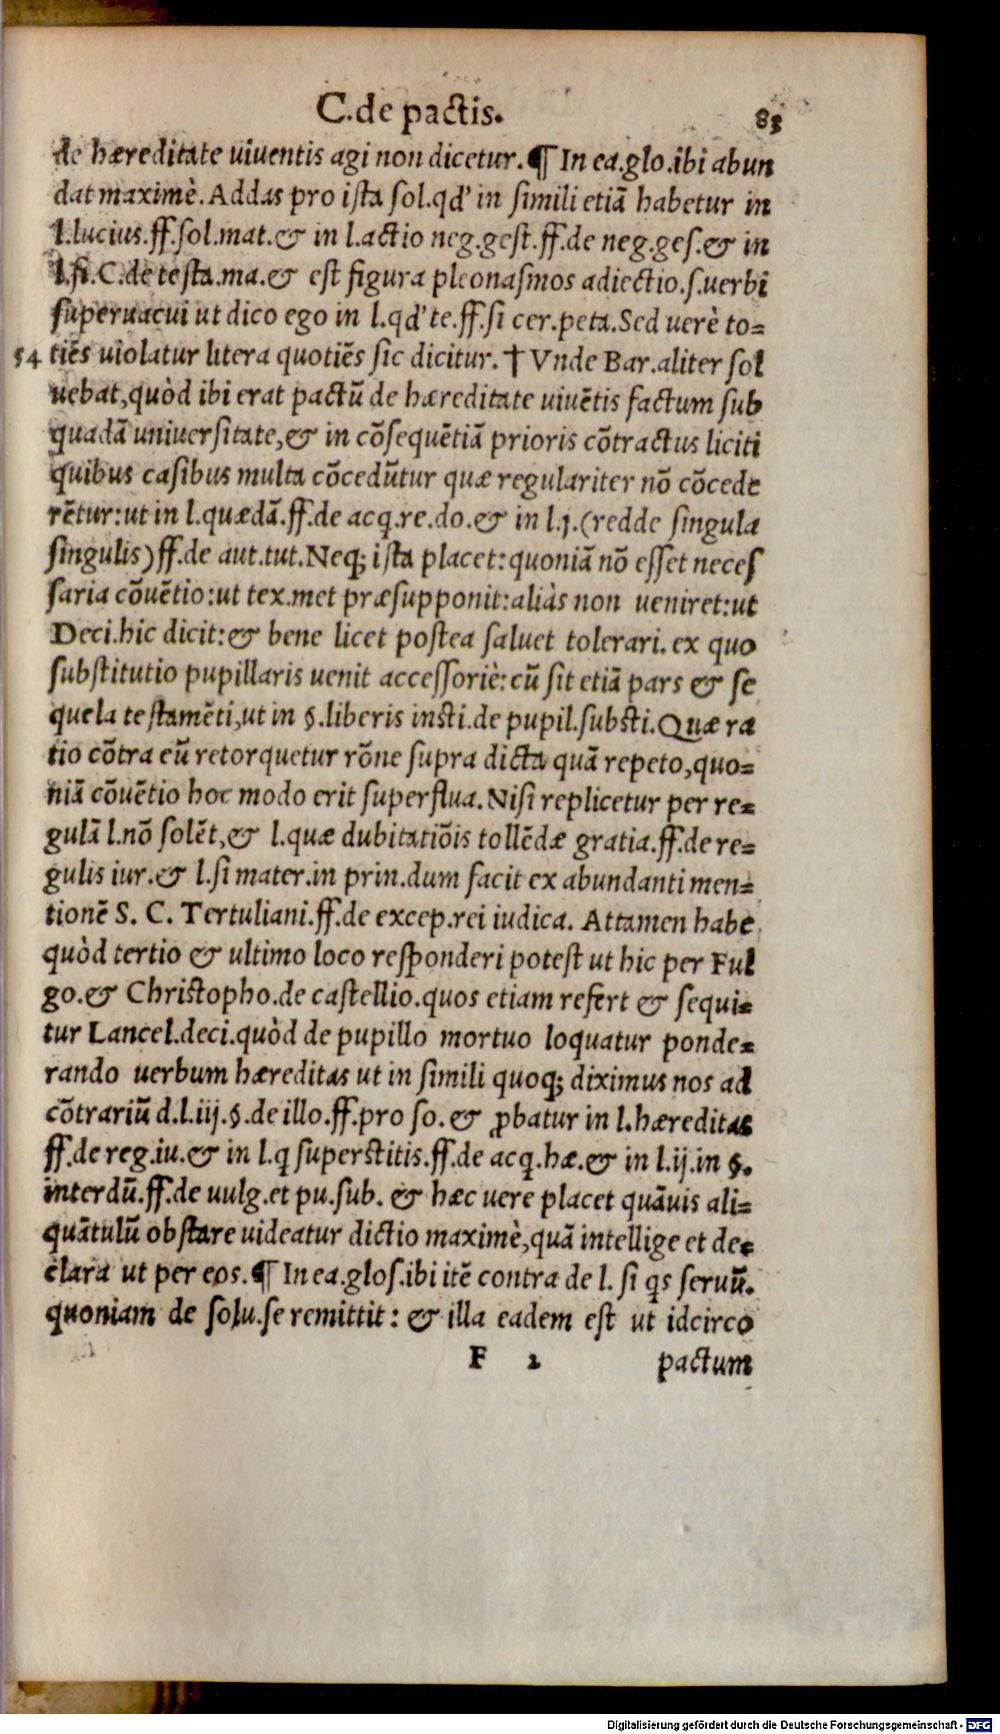 C.de pactis. 83
de hæreditate uiuentis agi non dicetur.¶ In ea.glo.ibi abun
dat maximè.Addas pro ista sol.qd' in simili etiã habetur in
l.lucius.ff.sol.mat.& in l.actio neg.gest.ff.de neg.ges.& in
l.fi.C.de testa.ma.& est figura pleonasmos adiectio.s.uerbi
superuacui ut dico ego in l.qd' te.ff.si cer.peta.Sed uerè to=
54 tiẽs uiolatur litera quotiẽs sic dicitur.† Vnde Bar.aliter sol
uebat,quòd ibi erat pactũ de hæreditate uiuẽtis factum sub
quadã uniuersitate,& in cõsequẽtiã prioris cõtractus liciti
quibus casibus multa cõcedũtur quæ regulariter nõ cõcede
rẽtur:ut in l.quædã.ff.de acq.re.do.& in l.j.(redde singula
singulis)ff.de aut.tut.Neq; ista placet:quoniã nõ esset neces
saria cõuẽtio:ut tex.met præsupponit:aliàs non ueniret:ut
Deci.hic dicit:& bene licet postea saluet tolerari. ex quo
substitutio pupillaris uenit accessoriè:cũ sit etiã pars & se
quela testamẽti,ut in §.liberis insti.de pupil.substi.Quæ ra
tio cõtra eũ retorquetur rõne supra dicta quã repeto,quo=
niã cõuẽtio hoc modo erit superflua.Nisi replicetur per re=
gulã l.nõ solẽt,& l.quæ dubitatiõis tollẽdæ gratia.ff.de re=
gulis iur.& l.si mater.in prin.dum facit ex abundanti men=
tionẽ S. C. Tertuliani.ff.de excep.rei iudica. Attamen habe
quòd tertio & ultimo loco responderi potest ut hic per Ful
go.& Christopho.de castellio.quos etiam refert & sequi=
tur Lancel.deci.quòd de pupillo mortuo loquatur ponde=
rando uerbum hæreditas ut in simili quoq; diximus nos ad
cõtrariũ d.l.iij.§.de illo.ff.pro so.& ꝓbatur in l.hæreditas
ff.de reg.iu.& in l.q superstitis.ff.de acq.hæ.& in l.ij.in §.
interdũ.ff.de uulg.et pu.sub. & hæc uere placet quãuis ali=
quãtulũ obstare uideatur dictio maximè,quã intellige et de=
clara ut per eos.¶ In ea.glos.ibi itẽ contra de l. si qs seruũ.
quoniam de solu.se remittit: & illa eadem est ut idcirco
F 2 pactum
Digitalisierung gefördert durch die Deutsche Forschungsgemeinschaft - DFG